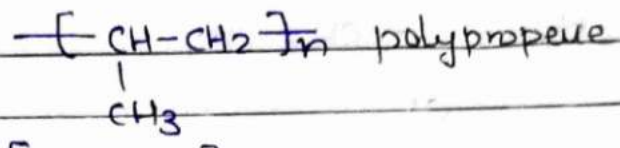 -[ CH-CH2 ]n polypropene
|
CH3